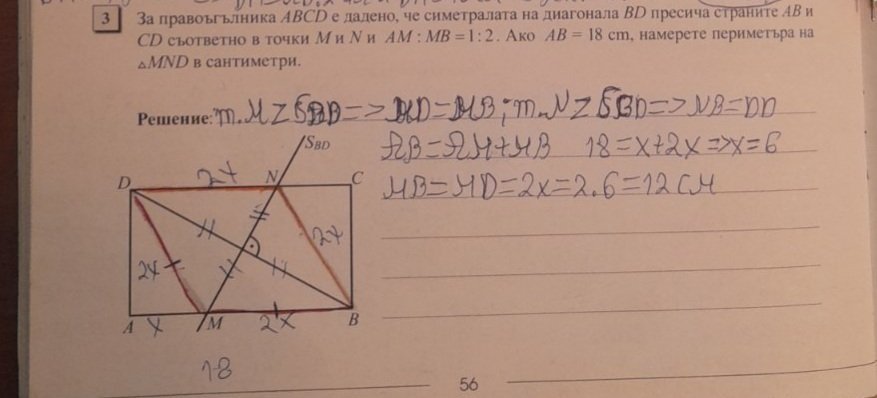 3 За правоъгълника ABCD е дадено, че симетралата на диагонала BD пресича страните AB и
CD съответно в точки M и N и AM : MB = 1 : 2. Ако AB = 18 cm, намерете периметъра на
△MND в сантиметри.
Решение: т.M Z SBD => MD = MB; т.N Z SBD => NB = DD
AB = AM + MB 18 = x + 2x => x = 6
MB = MD = 2x = 2.6 = 12 см
S_BD
D 2x N C
2x
2x
A x M 2x B
18
56